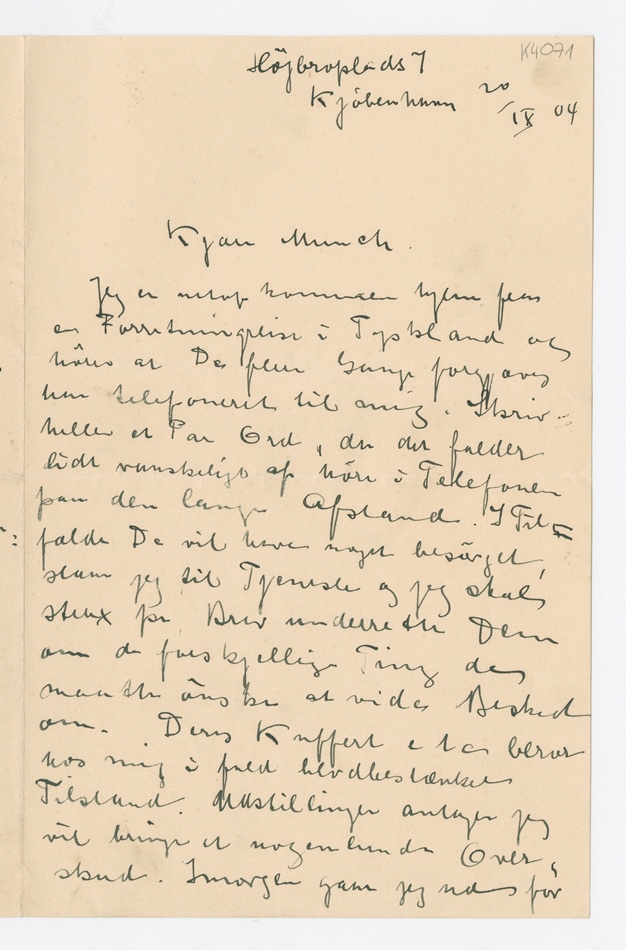 K4071
Höjbroplads 7
Kjöbenhavn 20/IX 04
Kjære Munch.
Jeg er netop kommen hjem fra
en Forretningreise i Tyskland og
hörer at De flere Gange forgjæves
har telefoneret til mig. Skriv
heller et Par Ord, da det falder
lidt vanskeligt at höre i Telefonen
paa den lange Afstand. I Til=
fælde De vil have noget besörget,
staar jeg til Tjeneste og jeg skal
strax pr. Brev underrette Dem
om de forskjellige Ting der
maatte önske at vide Besked
om. Deres Kuffert etc beror
hos mig i fuld blodbestænket
Tilstand. Udstillingen antager jeg
vil bringe et nogenlunde Over-
skud. Imorgen gaar jeg ud for